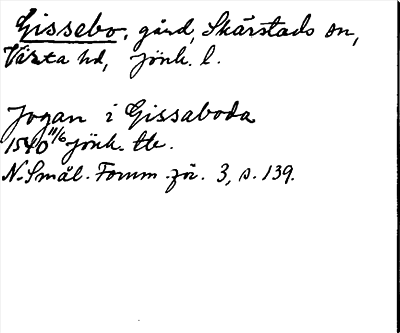 Gissebo, gård, Skärstads sn,
Vista hd, Jönk. l.
Jogan i Gissaboda
1540 11/6 Jönk. tb.
N. Smål. Fornm.för. 3, s. 139.